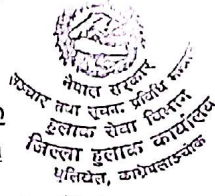 नेपाल सरकार
सञ्चार तथा सूचना प्रविधि
हुलाक सेवा विभाग
जिल्ला हुलाक कार्यालय
धुलिखेल, काभ्रेपलाञ्चोक